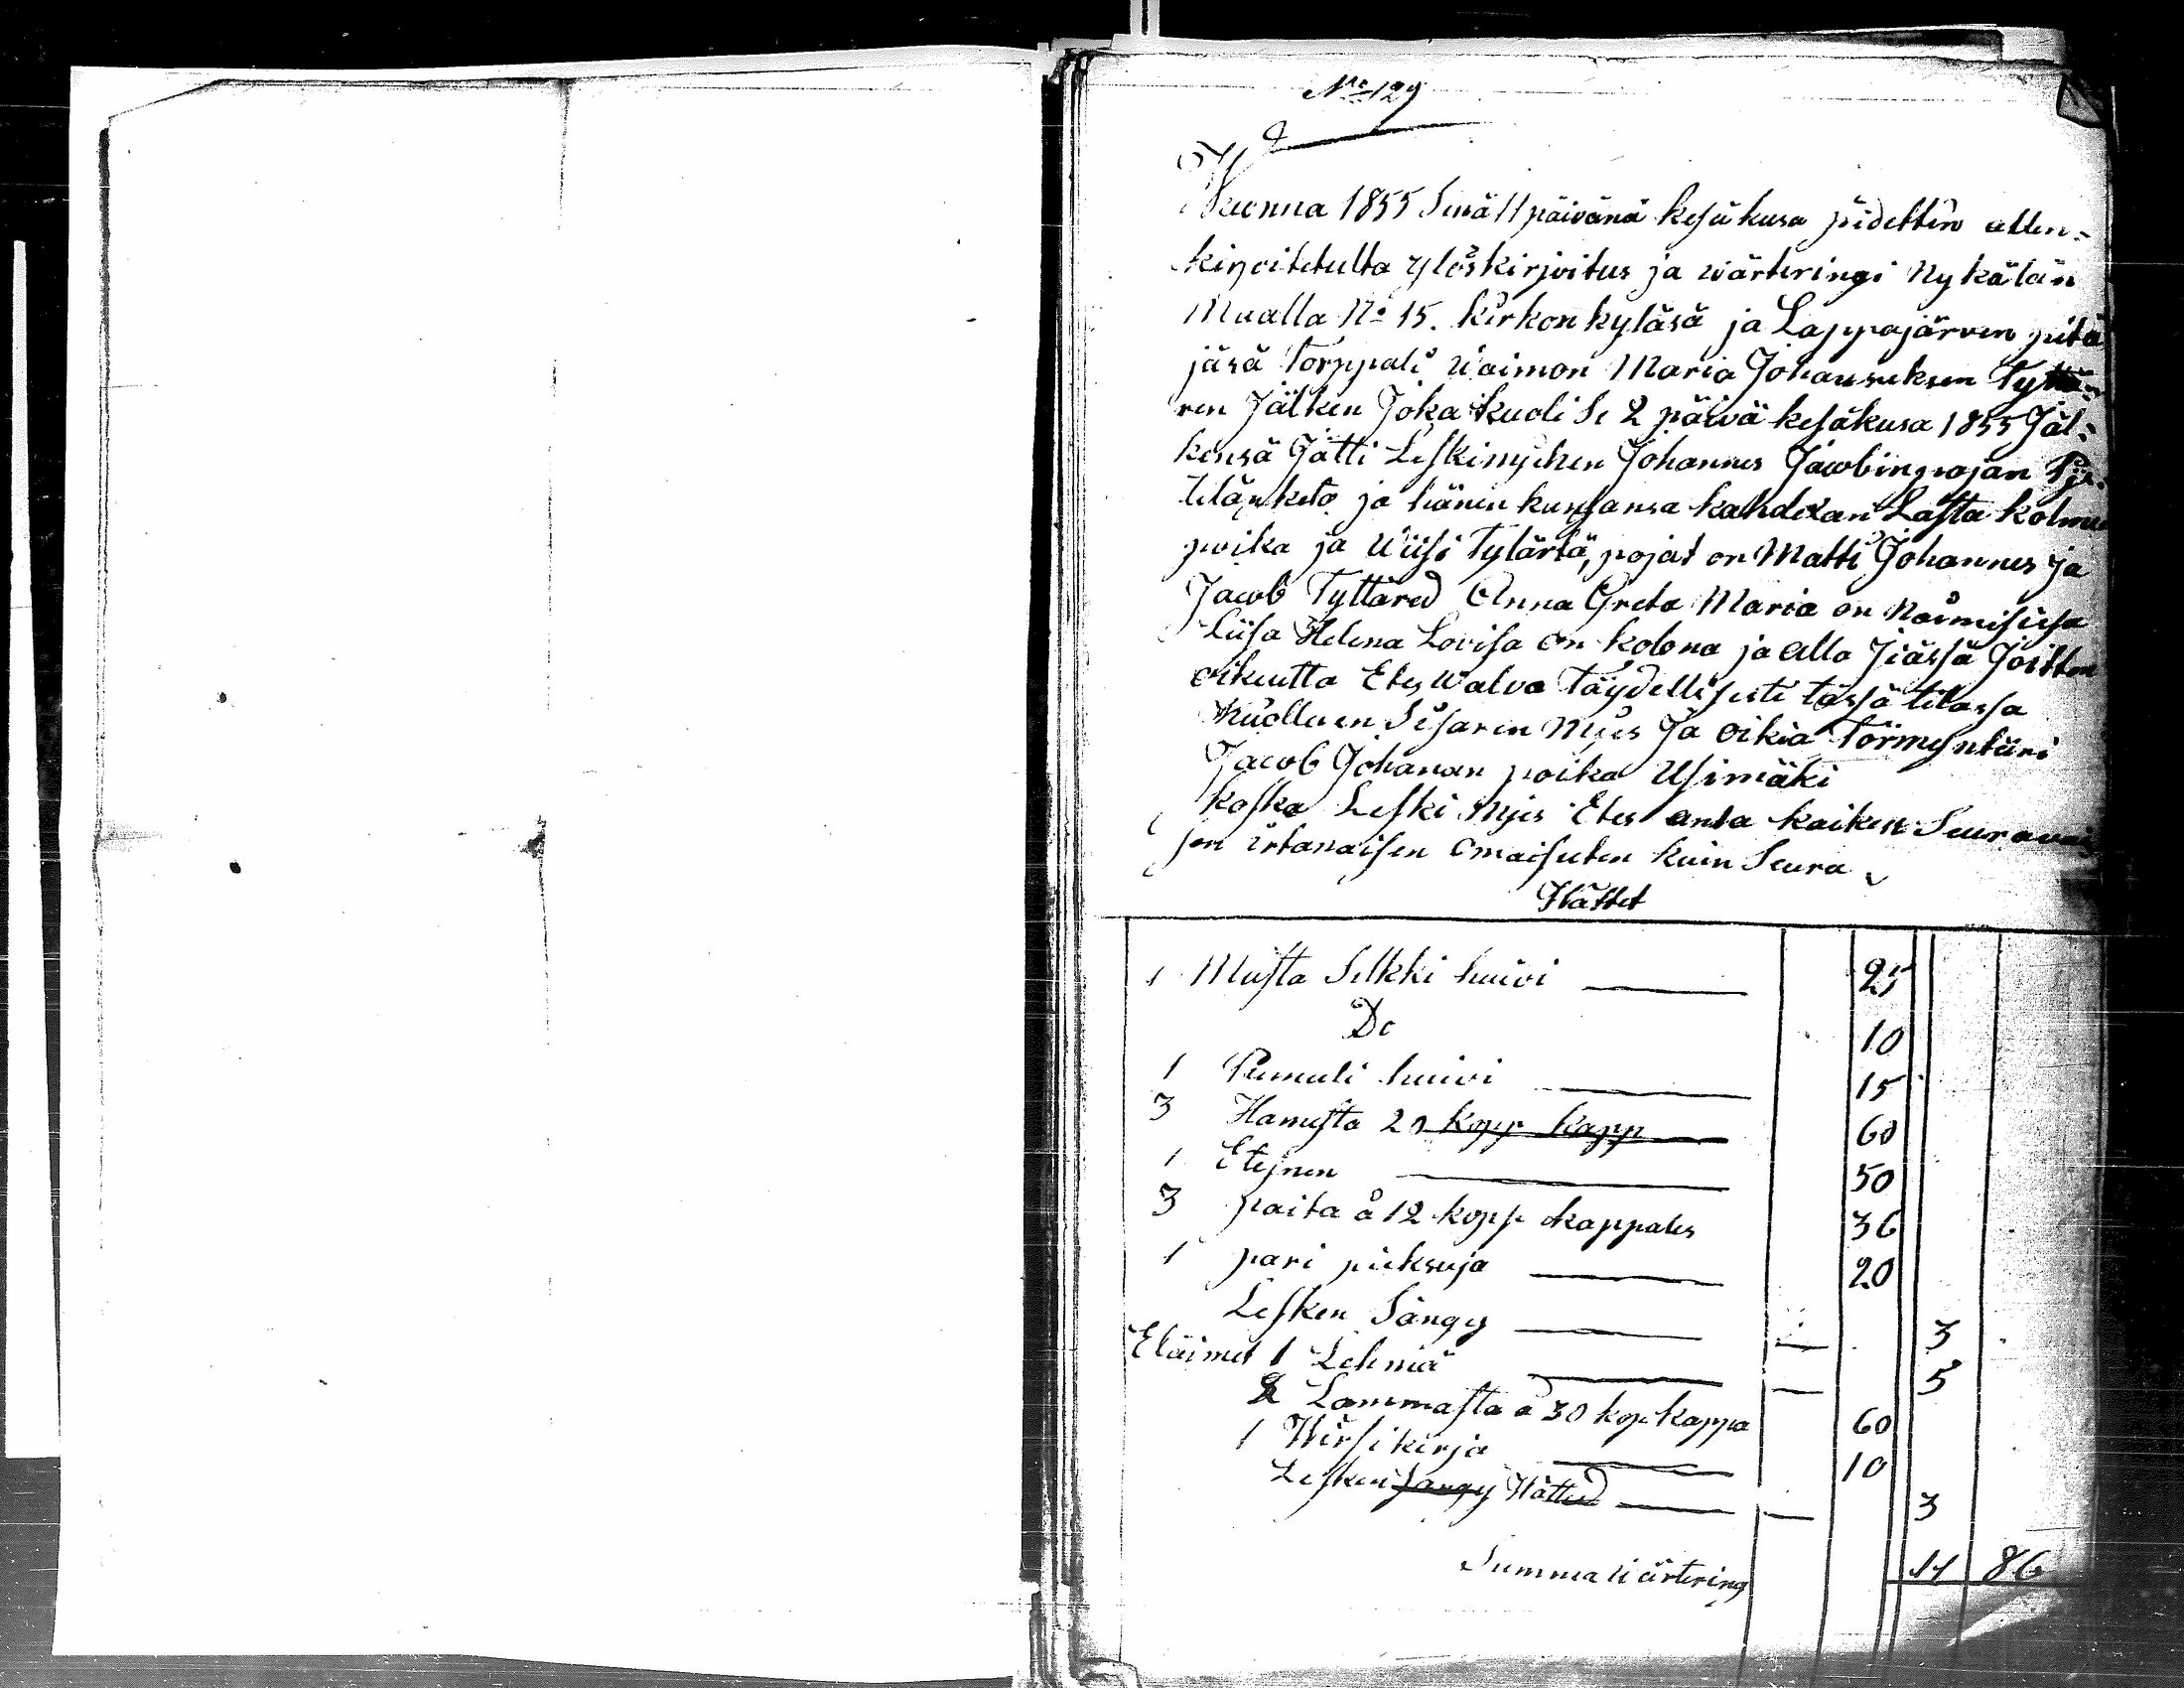 No 129
Wuonna 1855 Sinä 11 päivänä kesäkusa pidettin allen=
kirjoitetulta ylöskirjoitus ja wärteringi Nykälän
Maalla No 15. kirkon kyläsä ja Lappajärven pitä
jäsä Torppali Waimon Maria Johanneksen Tyttä=
ren Jälken Joka kuoli Se 2 päivä kesäkusa 1855 Jäl=
kensä Jätti Leskimjehen Johannes Jacobinpojan
ja hänen kansansa kahdexan Lasta kolme
poika ja Wiisi Tytärtä, pojat on Matti Johannes ja
Jacob Tyttäred Anna Greta Maria on Naimisisa
Liisa Helena Lovisa on kotona ja alla Jiässä Joitten
oikeutta Etes Walvo Täydellisesti tässä tilassa
Kuolluen Sisaren Mies Ja oikia Förmyntäri
Jacob Johanan poika Usimäki
koska Leski Mjes Etes anta kaiken Seuravai
sen irtanaisen Omaisuten kuin Seura
Wättet
1 Musta Silkki huivi 25
Do 10
1 Pumuli huivi 15
3 Hamesta 20 kopp kapp 60
1 Etejnen 50
3 paita å 12 kopp kappales 36
1 pari pieksuja 20
Lesken Sängy — 3
Eläimet 1 Lehmä — 5
2 Lammasta å 30 kop kappa 60
1 Wirsikirja 10
Lesken Sängy Wätted — 3
Summa Wärtering 86